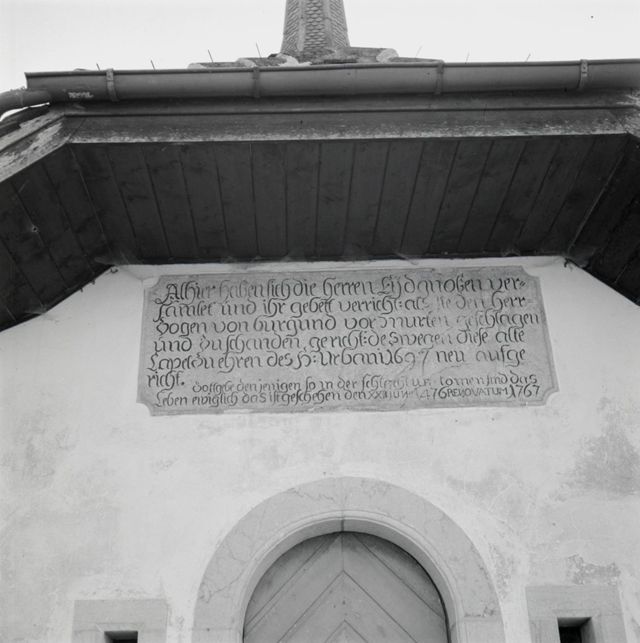 Alhier haben sich die Herren Eÿdgnoßen ver-
samlet und ihr gebett verricht: als sie den Herr-
zogen von burgund vor murten geschlagen
und zu schanden, gericht: deswegen diese alte
Capel zu ehren des H: Urbani 1697 neu aufge
richt. Gott gebe denjenigen so in der schlacht um komen sind das
Leben ewiglich das ist geschehen den XXII iuni 1476 RENOVATUM 1767